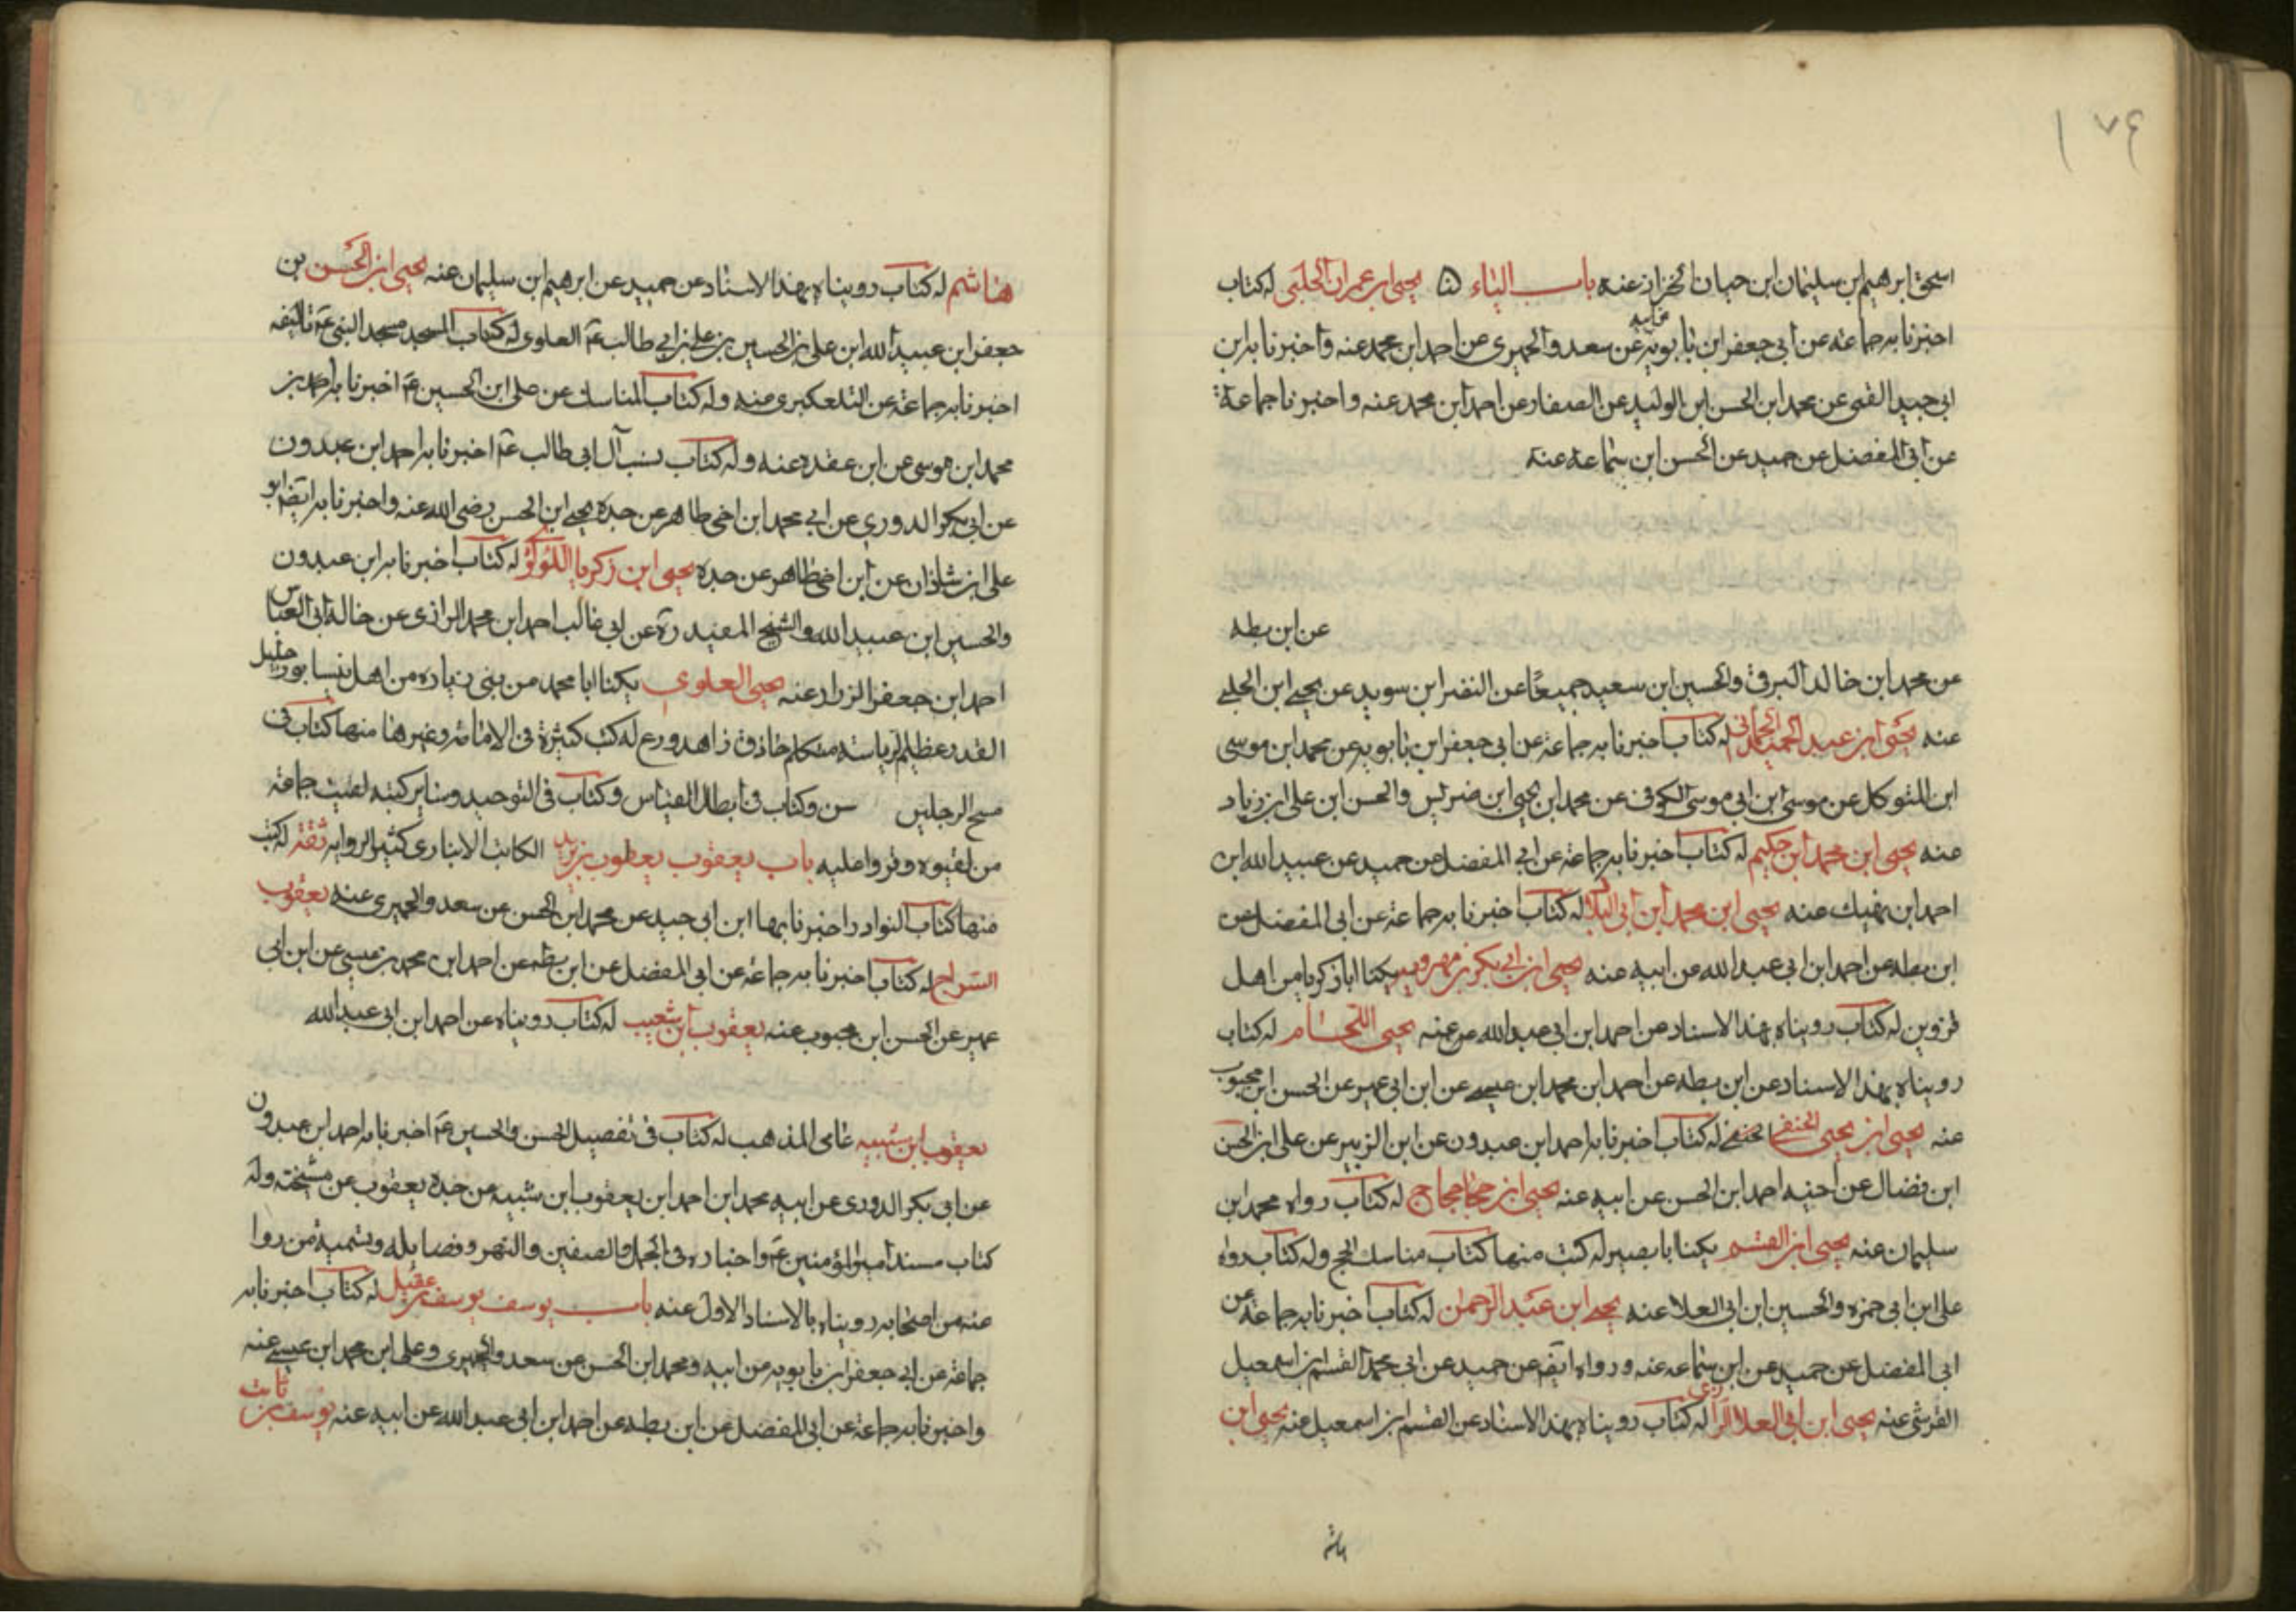 ١٧٤
اسحق ابرهيم بن سليمان ابن حيان الخزاز عنه باب الياء يحيى ابن عمران الحلبى له كتاب
اخبرنا به جماعة عن ابى جعفر ابن بابويه عن ابيه عن سعد والحميرى عن احمد ابن محمد عنه واخبرنا به ابن
ابى جيد القمى عن محمد ابن الحسن ابن الوليد عن الصفار عن احمد ابن محمد عنه واخبرنا جماعة
عن ابى المفضل عن حميد عن الحسن ابن سماعة عنه
عن ابن بطه
عن محمد ابن خالد البرقى والحسين ابن سعيد جميعا عن النضر ابن سويد عن يحيى ابن الحلبى
عنه يحيى ابن عبد الحميد الحمانى له كتاب اخبرنا به جماعة عن ابى جعفر ابن بابويه عن محمد ابن موسى
ابن المتوكل عن موسى ابن ابى موسى الكوفى عن محمد ابن يحيى ابن ضريس والحسن ابن على ابن زياد
عنه يحيى ابن محمد ابن حكيم له كتاب اخبرنا به جماعة عن ابى المفضل عن حميد عن عبيد الله ابن
احمد ابن نهيك عنه يحيى ابن محمد ابن ابى البلاد له كتاب اخبرنا به جماعة عن ابى المفضل عن
ابن بطه عن احمد ابن ابى عبد الله عن ابيه عنه يحيى ابن ابى بكر بن مهرويه يكنا ابا زكريا من اهل
قزوين له كتاب رويناه بهذا الاسناد عن احمد ابن ابى عبد الله عن عنه يحيى اللحام له كتاب
رويناه بهذا الاسناد عن ابن بطه عن احمد ابن محمد ابن عيسى عن ابن ابى عمير عن الحسن ابن محبوب
عنه يحيى ابن يحيى الحنفى الحنفى له كتاب اخبرنا به احمد ابن عبدون عن ابن الزبير عن على ابن الحسن
ابن فضال عن اخيه احمد ابن الحسن عن ابيه عنه يحيى ابن حجاج له كتاب رواه محمد ابن
سليمان عنه يحيى ابن القسم يكنا ابا بصير له كتب منها كتاب مناسك الحج وله كتاب رواه
على ابن ابى حمزه والحسين ابن ابى العلا عنه يحيى ابن عبد الرحمان له كتاب اخبرنا به جماعة عن
ابى المفضل عن حميد عن ابن سماعه عنه ورواه ايضا عن حميد عن ابى محمد القسم ابن اسمعيل
القرشى عنه يحيى ابن ابى العلا الرازى له كتاب رويناه بهذا الاسناد عن القسم ابن اسمعيل عنه يحيى ابن
هاشم
هاشم له كتاب رويناه بهذا الاسناد عن حميد عن ابرهيم ابن سليمان عنه يحيى ابن الحسن بن
جعفر ابن عبيد الله ابن على بن الحسين بن على بن ابى طالب ع العلوى له كتاب المسجد مسجد النبى ع تاليفه
اخبرنا به جماعة عن التلعكبرى عنه وله كتاب المناسك عن على ابن الحسين ع اخبرنا به احمد بن
محمد ابن موسى عن ابن عقده عنه وله كتاب نسب آل ابى طالب ع اخبرنا به احمد ابن عبدون
عن ابى بكر الدورى عن ابى محمد ابن اخى طاهر عن جده يحيى ابن الحسن رضى الله عنه واخبرنا به ايضا ابو
على ابن شاذان عن ابن اخى طاهر عن جده يحيى ابن زكريا اللؤلؤى له كتاب اخبرنا به ابن عبدون
والحسين ابن عبيد الله والشيخ المفيد ره عن ابى غالب احمد ابن محمد الرازى عن خاله ابى العباس
احمد ابن جعفر الزراد عنه يحيى العلوى يكنا ابا محمد من بنى زياره من اهل نيسابور جليل
القدر عظيم الرياسة متكلم حاذق زاهد ورع له كتب كثيرة فى الامامة وغيرها منها كتاب فى
مسح الرجلين سن وكتاب فى ابطال القياس وكتاب فى التوحيد وساير كتبه لقيت جماعة
من لقيوه وقروا عليه باب يعقوب يعقوب بن يزيد الكاتب الانبارى كثير الرواية ثقة له كتب
منها كتاب النوادر اخبرنا بها ابن ابى جيد عن محمد ابن الحسن عن سعد والحميرى عنه يعقوب
السراج له كتاب اخبرنا به جماعة عن ابى المفضل عن ابن بطه عن احمد ابن محمد بن عيسى عن ابن ابى
عمير عن الحسن ابن محبوب عنه يعقوب ابن شعيب له كتاب رويناه عن احمد ابن ابى عبد الله
يعقوب ابن شيبه عامى المذهب له كتاب فى تفضيل الحسن والحسين ع اخبرنا به احمد ابن عبدون
عن ابى بكر الدورى عن ابيه محمد ابن احمد ابن يعقوب ابن شيبه عن جده يعقوب عن مشيخته وله
كتاب مسند امير المؤمنين ع واخباره فى الجمل والصفين والنهر وفضايله وتسمية من روا
عنه من اصحابه رويناه بالاسناد الاول عنه باب يوسف يوسف بن عقيل له كتاب اخبرنا به
جماعة عن ابى جعفر ابن بابويه عن ابيه ومحمد ابن الحسن عن سعد والحميرى وعلى ابن محمد ابن عيسى عنه
واخبرنا به جماعة عن ابى المفضل عن ابن بطه عن احمد ابن ابى عبد الله عن ابيه عنه يوسف بن ثابت